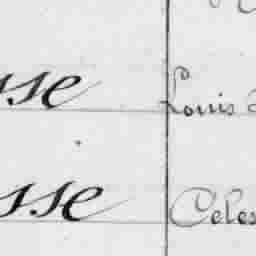 sse Louis
sse Celes